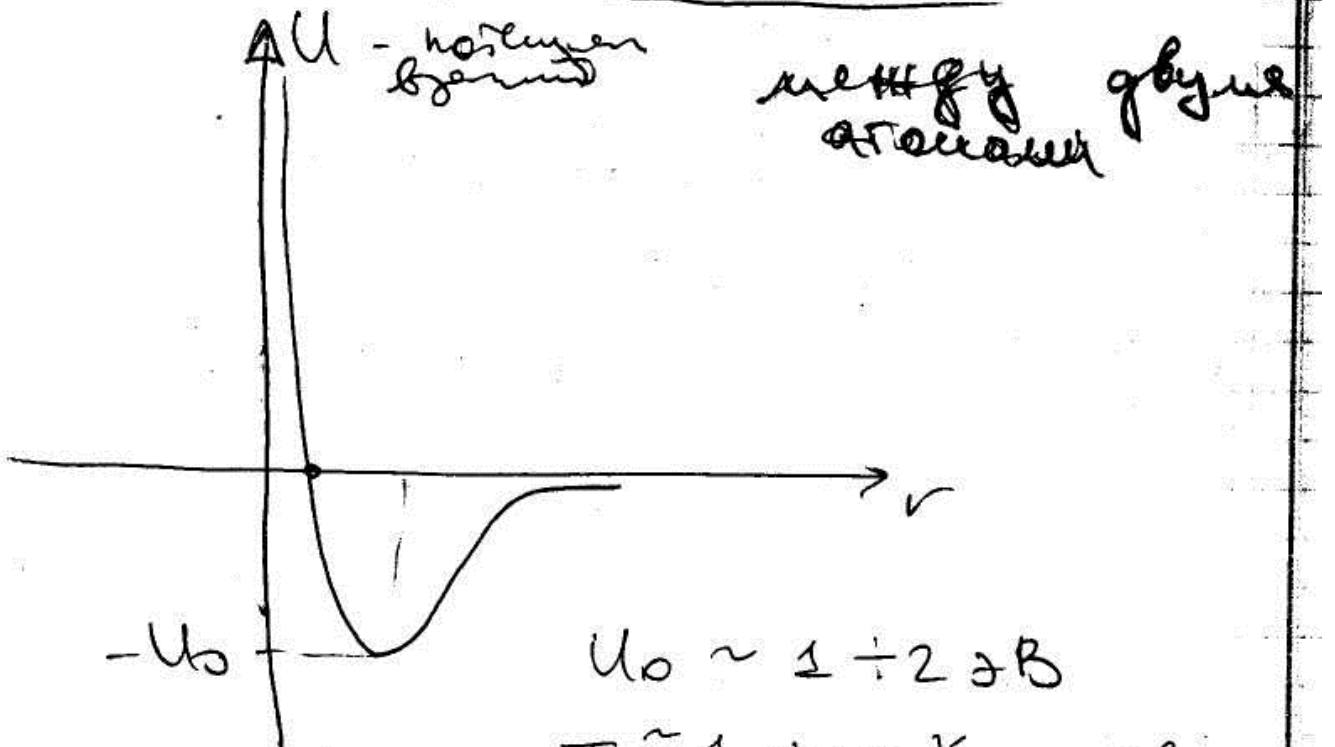 U - потенциал
взаимод
между двумя
атомами
r
-U₀
U₀ ~ 1 ÷ 2 эВ